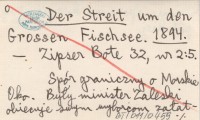 Der Streit um den
Grossen Fischsee. 1894.
– Zipser Bote 32, nr 25.
Spór graniczny o Morskie
Oko. Były minister Zaleski
obiecuje swym wyborcom załat-